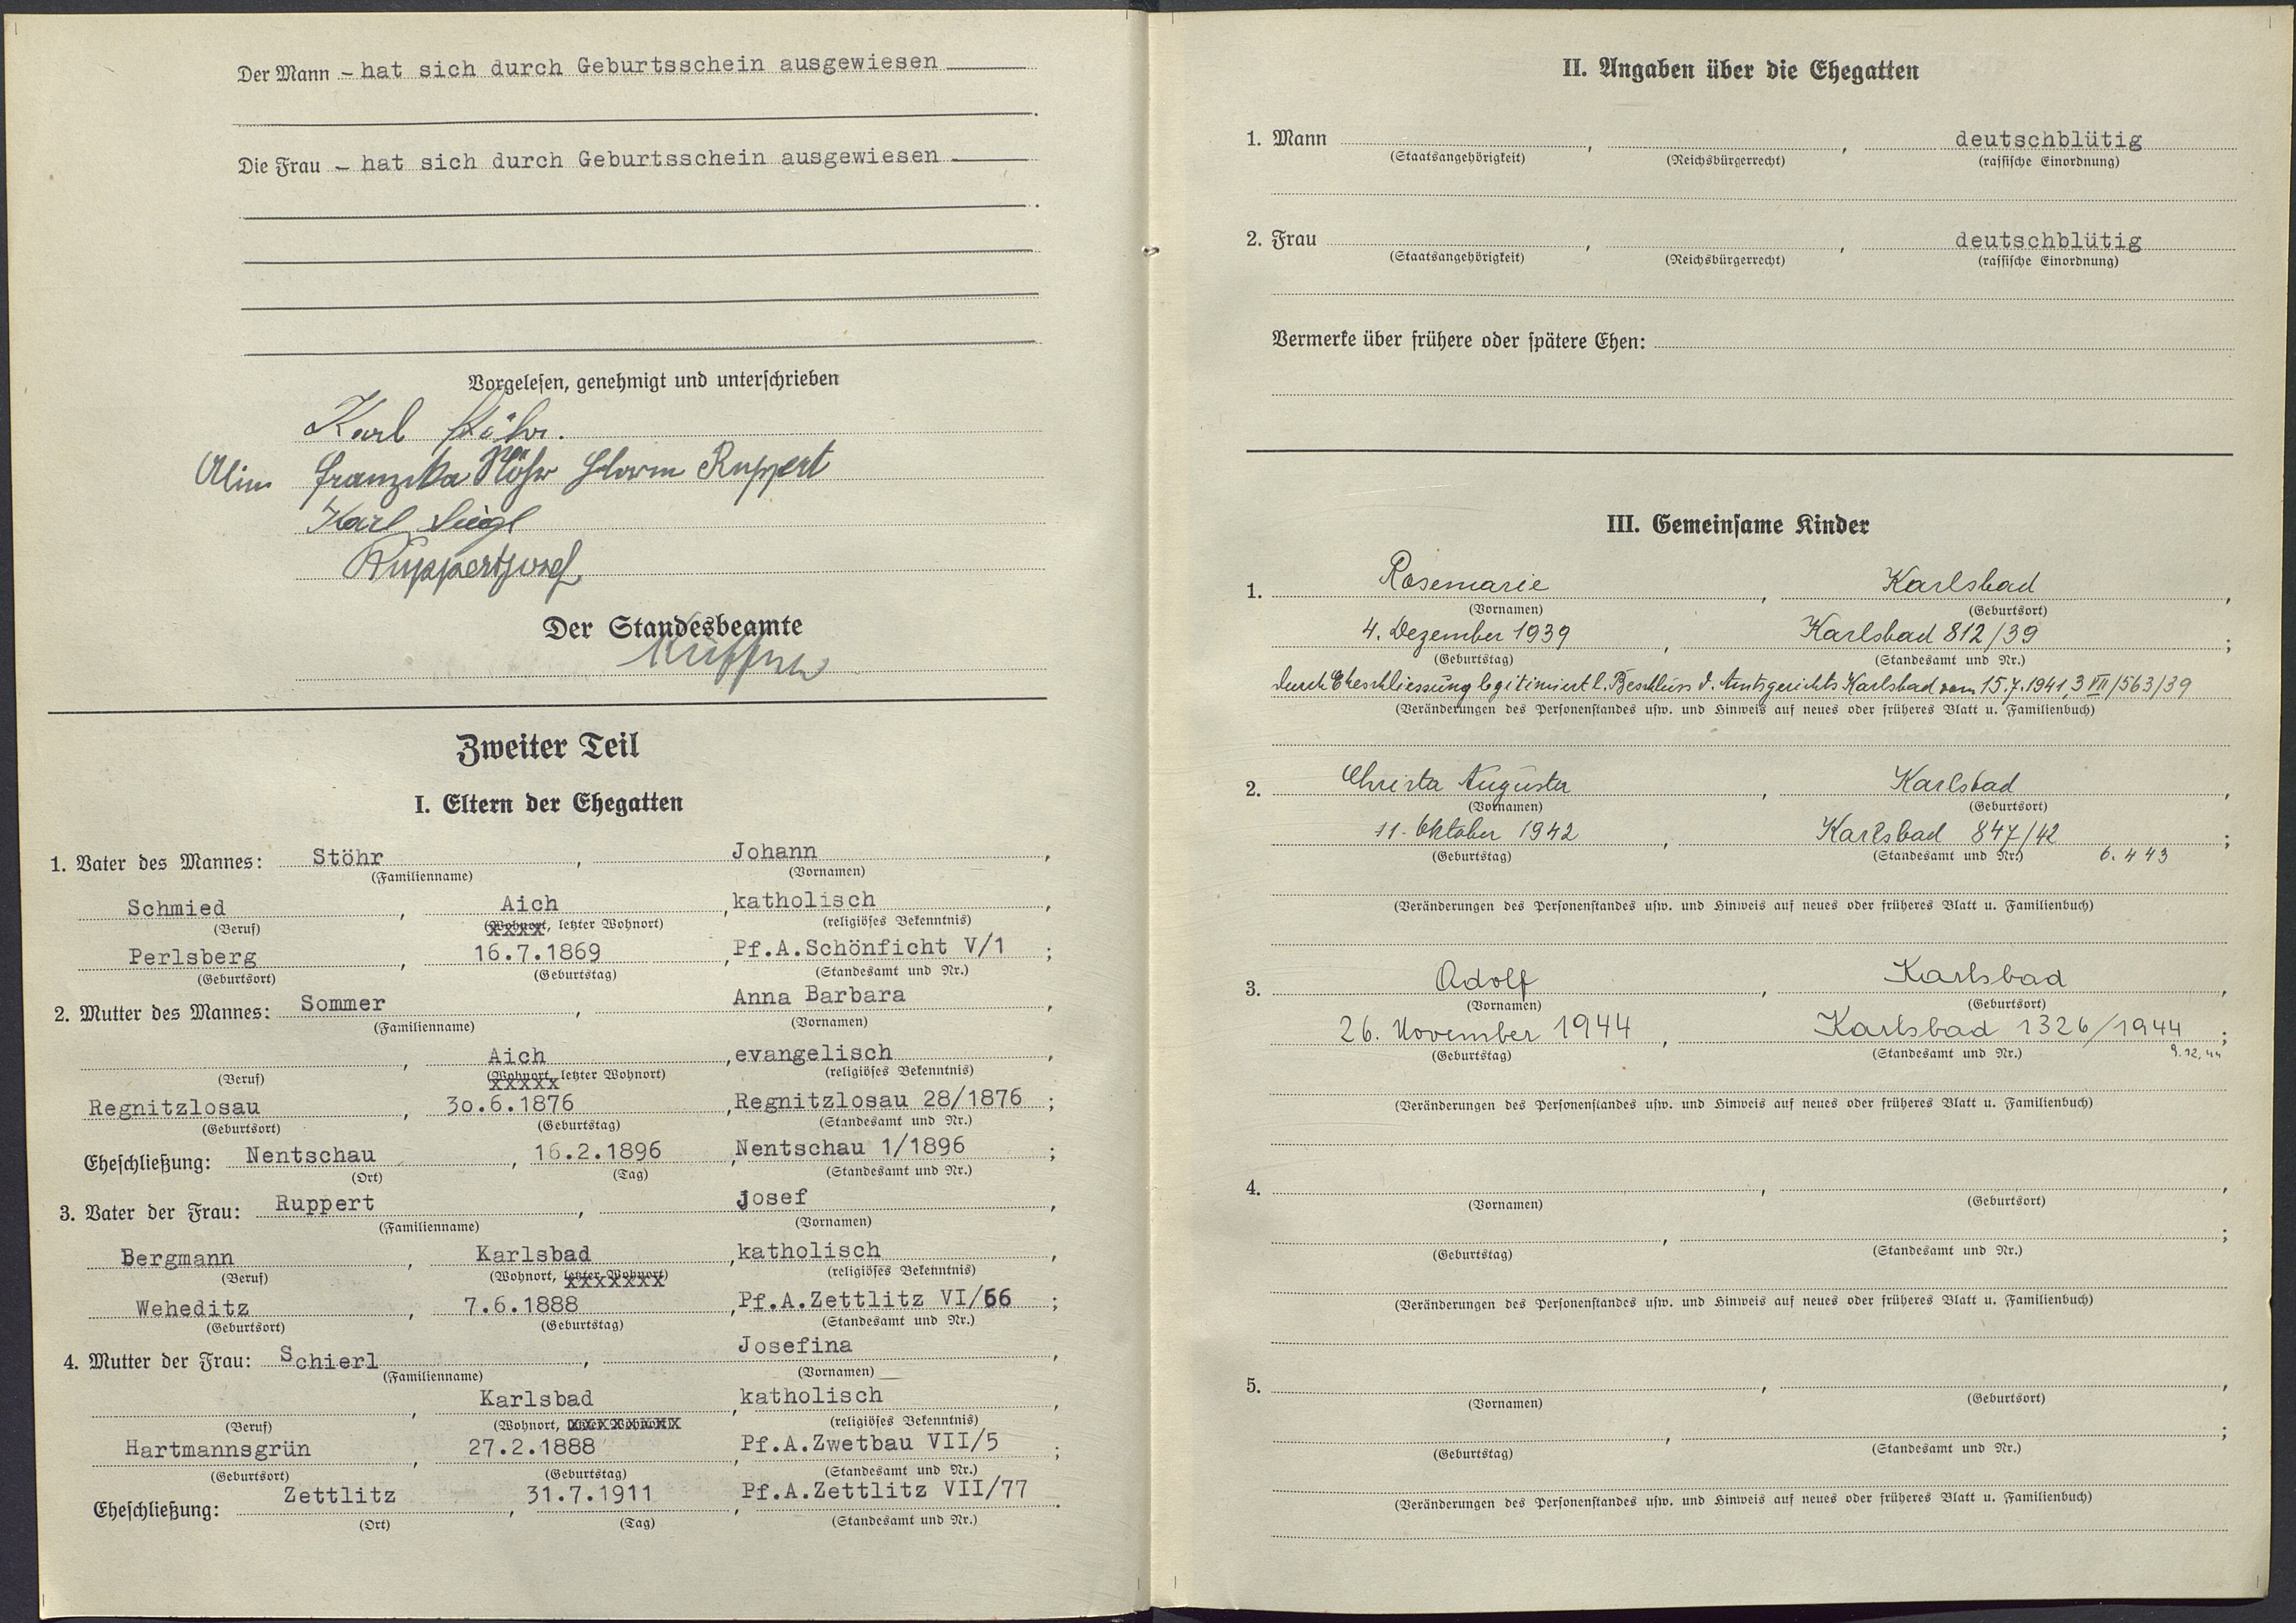 Der Mann – hat sich durch Geburtsschein ausgewiesen
Die Frau – hat sich durch Geburtsschein ausgewiesen
Vorgelesen, genehmigt und unterschrieben
Karl Stöhr.
Franziska Stöhr Ruppert
Karl
Ruppert Josef
Der Standesbeamte
Zweiter Teil
I. Eltern der Ehegatten
1. Vater des Mannes: Stöhr, Johann,
(Familienname) (Vornamen)
Schmied, Aich, katholisch,
(Beruf) (Wohnort, letzter Wohnort) (religiöses Bekenntnis)
xxxx
Perlsberg, 16.7.1869, Pf.A.Schönficht V/1;
(Geburtsort) (Geburtstag) (Standesamt und Nr.)
2. Mutter des Mannes: Sommer, Anna Barbara,
(Familienname) (Vornamen)
, Aich, evangelisch,
(Beruf) (Wohnort, letzter Wohnort) (religiöses Bekenntnis)
xxxxx
Regnitzlosau, 3o.6.1876, Regnitzlosau 28/1876;
(Geburtsort) (Geburtstag) (Standesamt und Nr.)
Eheschließung: Nentschau, 16.2.1896, Nentschau 1/1896;
(Ort) (Tag) (Standesamt und Nr.)
3. Vater der Frau: Ruppert, Josef,
(Familienname) (Vornamen)
Bergmann, Karlsbad, katholisch,
(Beruf) (Wohnort, letzter Wohnort) (religiöses Bekenntnis)
xxxxxxx
Weheditz, 7.6.1888, Pf.A.Zettlitz VI/66;
(Geburtsort) (Geburtstag) (Standesamt und Nr.)
4. Mutter der Frau: Schierl, Josefina,
(Familienname) (Vornamen)
, Karlsbad, katholisch,
(Beruf) (Wohnort, letzter Wohnort) (religiöses Bekenntnis)
Hartmannsgrün, 27.2.1888, Pf.A.Zwetbau VII/5;
(Geburtsort) (Geburtstag) (Standesamt und Nr.)
Eheschließung: Zettlitz, 31.7.1911, Pf.A.Zettlitz VII/77.
(Ort) (Tag) (Standesamt und Nr.)
II. Angaben über die Ehegatten
1. Mann , , deutschblütig
(Staatsangehörigkeit) (Reichsbürgerrecht) (rassische Einordnung)
2. Frau , , deutschblütig
(Staatsangehörigkeit) (Reichsbürgerrecht) (rassische Einordnung)
Vermerke über frühere oder spätere Ehen:
III. Gemeinsame Kinder
1. Rosemarie, Karlsbad,
(Vornamen) (Geburtsort)
4. Dezember 1939, Karlsbad 812/39;
(Geburtstag) (Standesamt und Nr.)
durch Eheschliessung legitimiert l. Beschluss d. Amtsgerichts Karlsbad vom 15.7.1941, 3 VII/563/39
(Veränderungen des Personenstandes usw. und Hinweis auf neues oder früheres Blatt u. Familienbuch)
2. Christa Augusta, Karlsbad,
(Vornamen) (Geburtsort)
11. Oktober 1942, Karlsbad 847/42;
(Geburtstag) (Standesamt und Nr.) 6. 4 43
(Veränderungen des Personenstandes usw. und Hinweis auf neues oder früheres Blatt u. Familienbuch)
3. Adolf, Karlsbad,
(Vornamen) (Geburtsort)
26. November 1944, Karlsbad 1326/1944;
(Geburtstag) (Standesamt und Nr.) 9.12.44
(Veränderungen des Personenstandes usw. und Hinweis auf neues oder früheres Blatt u. Familienbuch)
4. , ,
(Vornamen) (Geburtsort)
, ;
(Geburtstag) (Standesamt und Nr.)
(Veränderungen des Personenstandes usw. und Hinweis auf neues oder früheres Blatt u. Familienbuch)
5. , ,
(Vornamen) (Geburtsort)
, ;
(Geburtstag) (Standesamt und Nr.)
(Veränderungen des Personenstandes usw. und Hinweis auf neues oder früheres Blatt u. Familienbuch)